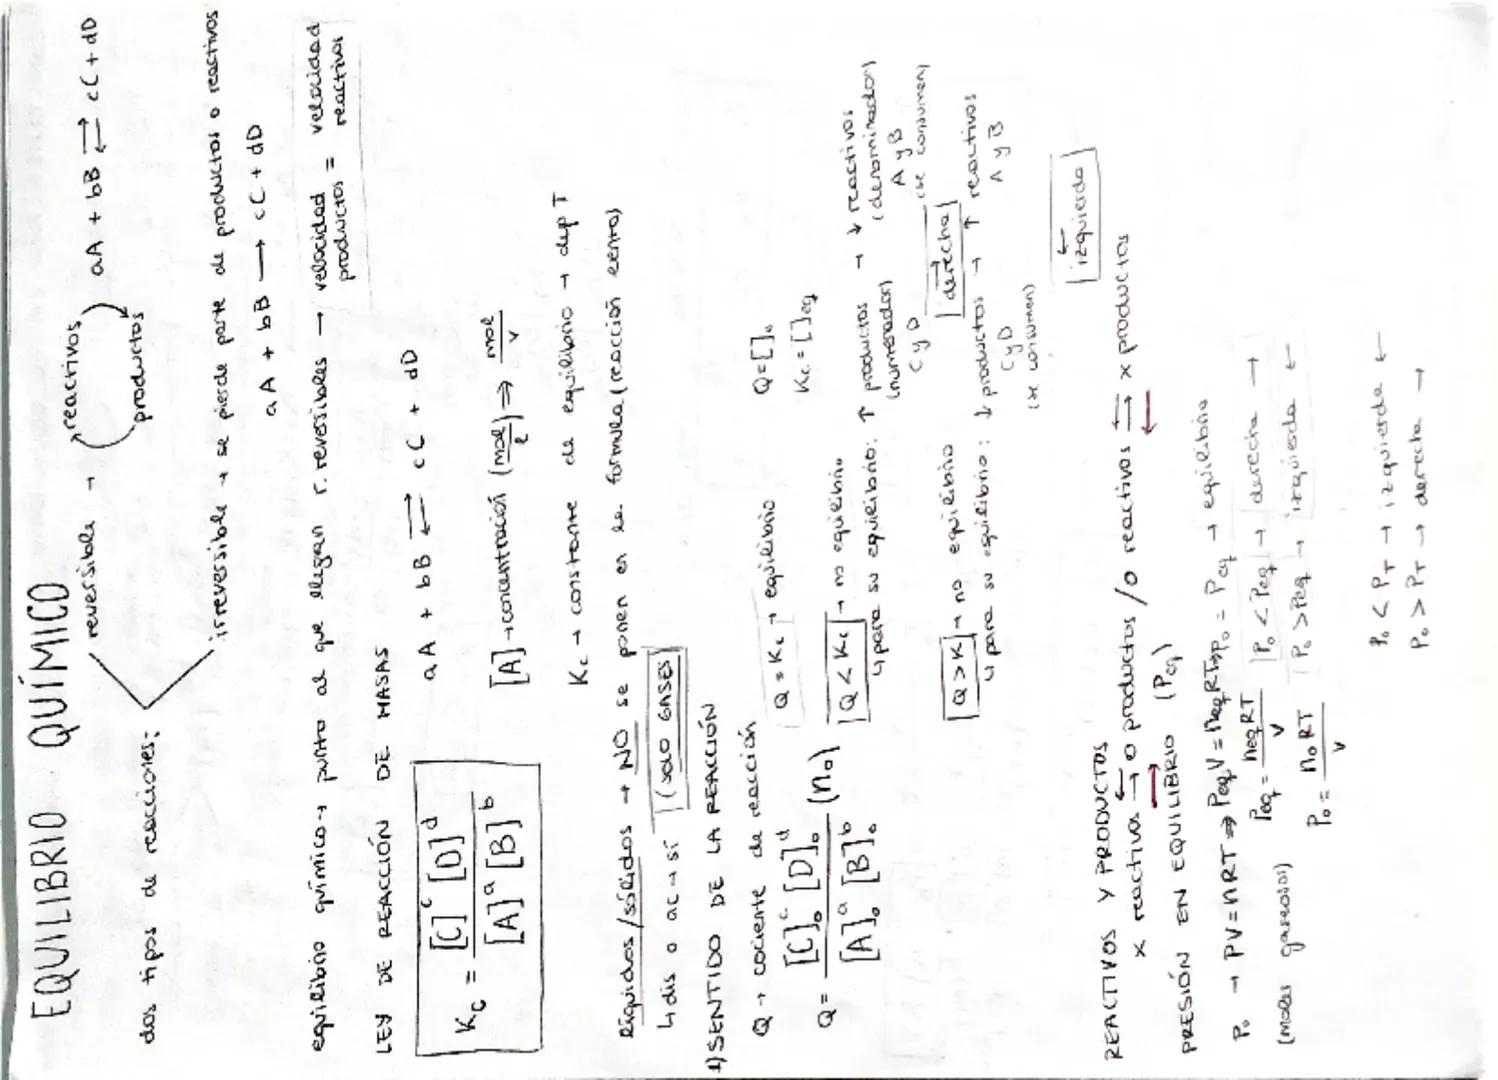 EQUILIBRIO QUÍMICO
dos tipos de reacciones:
reversible → reactivos productos aA + bB ⇄ cC + dD
irreversible → se pierde parte de productos o reactivos
aA + bB → cC + dD
equilibrio químico → punto al que llegan r. reversibles → velocidad productos = velocidad reactivos
LEY DE REACCIÓN DE MASAS
aA + bB ⇄ cC + dD
Kc = [C]^c [D]^d / [A]^a [B]^b
[A] → concentración (mol/l) ⇒ mol/v
Kc → constante de equilibrio → dep T
líquidos/sólidos → NO se ponen en la fórmula (reacción
↳ dis o ac → sí (SOLO GASES)
1) SENTIDO DE LA REACCIÓN
Q → cociente de reacción
Q = [C]₀^c [D]₀^d / [A]₀^a [B]₀^b (n₀)
Q = [ ]₀
Kc = [ ]eq
Q = Kc → equilibrio
Q < Kc → no equilibrio
↳ para su equilibrio: ↑ productos → ↓ reactivos
(numerador) (denominador)
C y D A y B
(se consumen)
derecha →
Q > K → no equilibrio
↳ para su equilibrio: ↓ productos → ↑ reactivos
C y D A y B
(se consumen)
← izquierda
REACTIVOS Y PRODUCTOS
x reactivos ⇄ 0 productos / 0 reactivos ⇄ x productos
PRESIÓN EN EQUILIBRIO (Peq)
P₀ → PV = nRT ⇒ PeqV = neqRT P₀ = Peq → equilibrio
(moles gaseosos) Peq = neqRT / v P₀ < Peq → derecha →
P₀ = n₀RT / v P₀ > Peq → izquierda ←
P₀ < PT → izquierda ←
P₀ > PT → derecha →